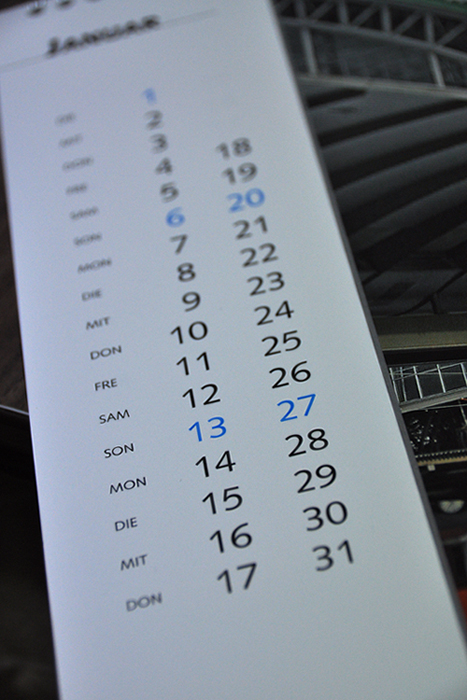 JANUAR
DIE 1
MIT 2
DON 3
FRE 4 18
SAM 5 19
SON 6 20
MON 7 21
DIE 8 22
MIT 9 23
DON 10 24
FRE 11 25
SAM 12 26
SON 13 27
MON 14 28
DIE 15 29
MIT 16 30
DON 17 31